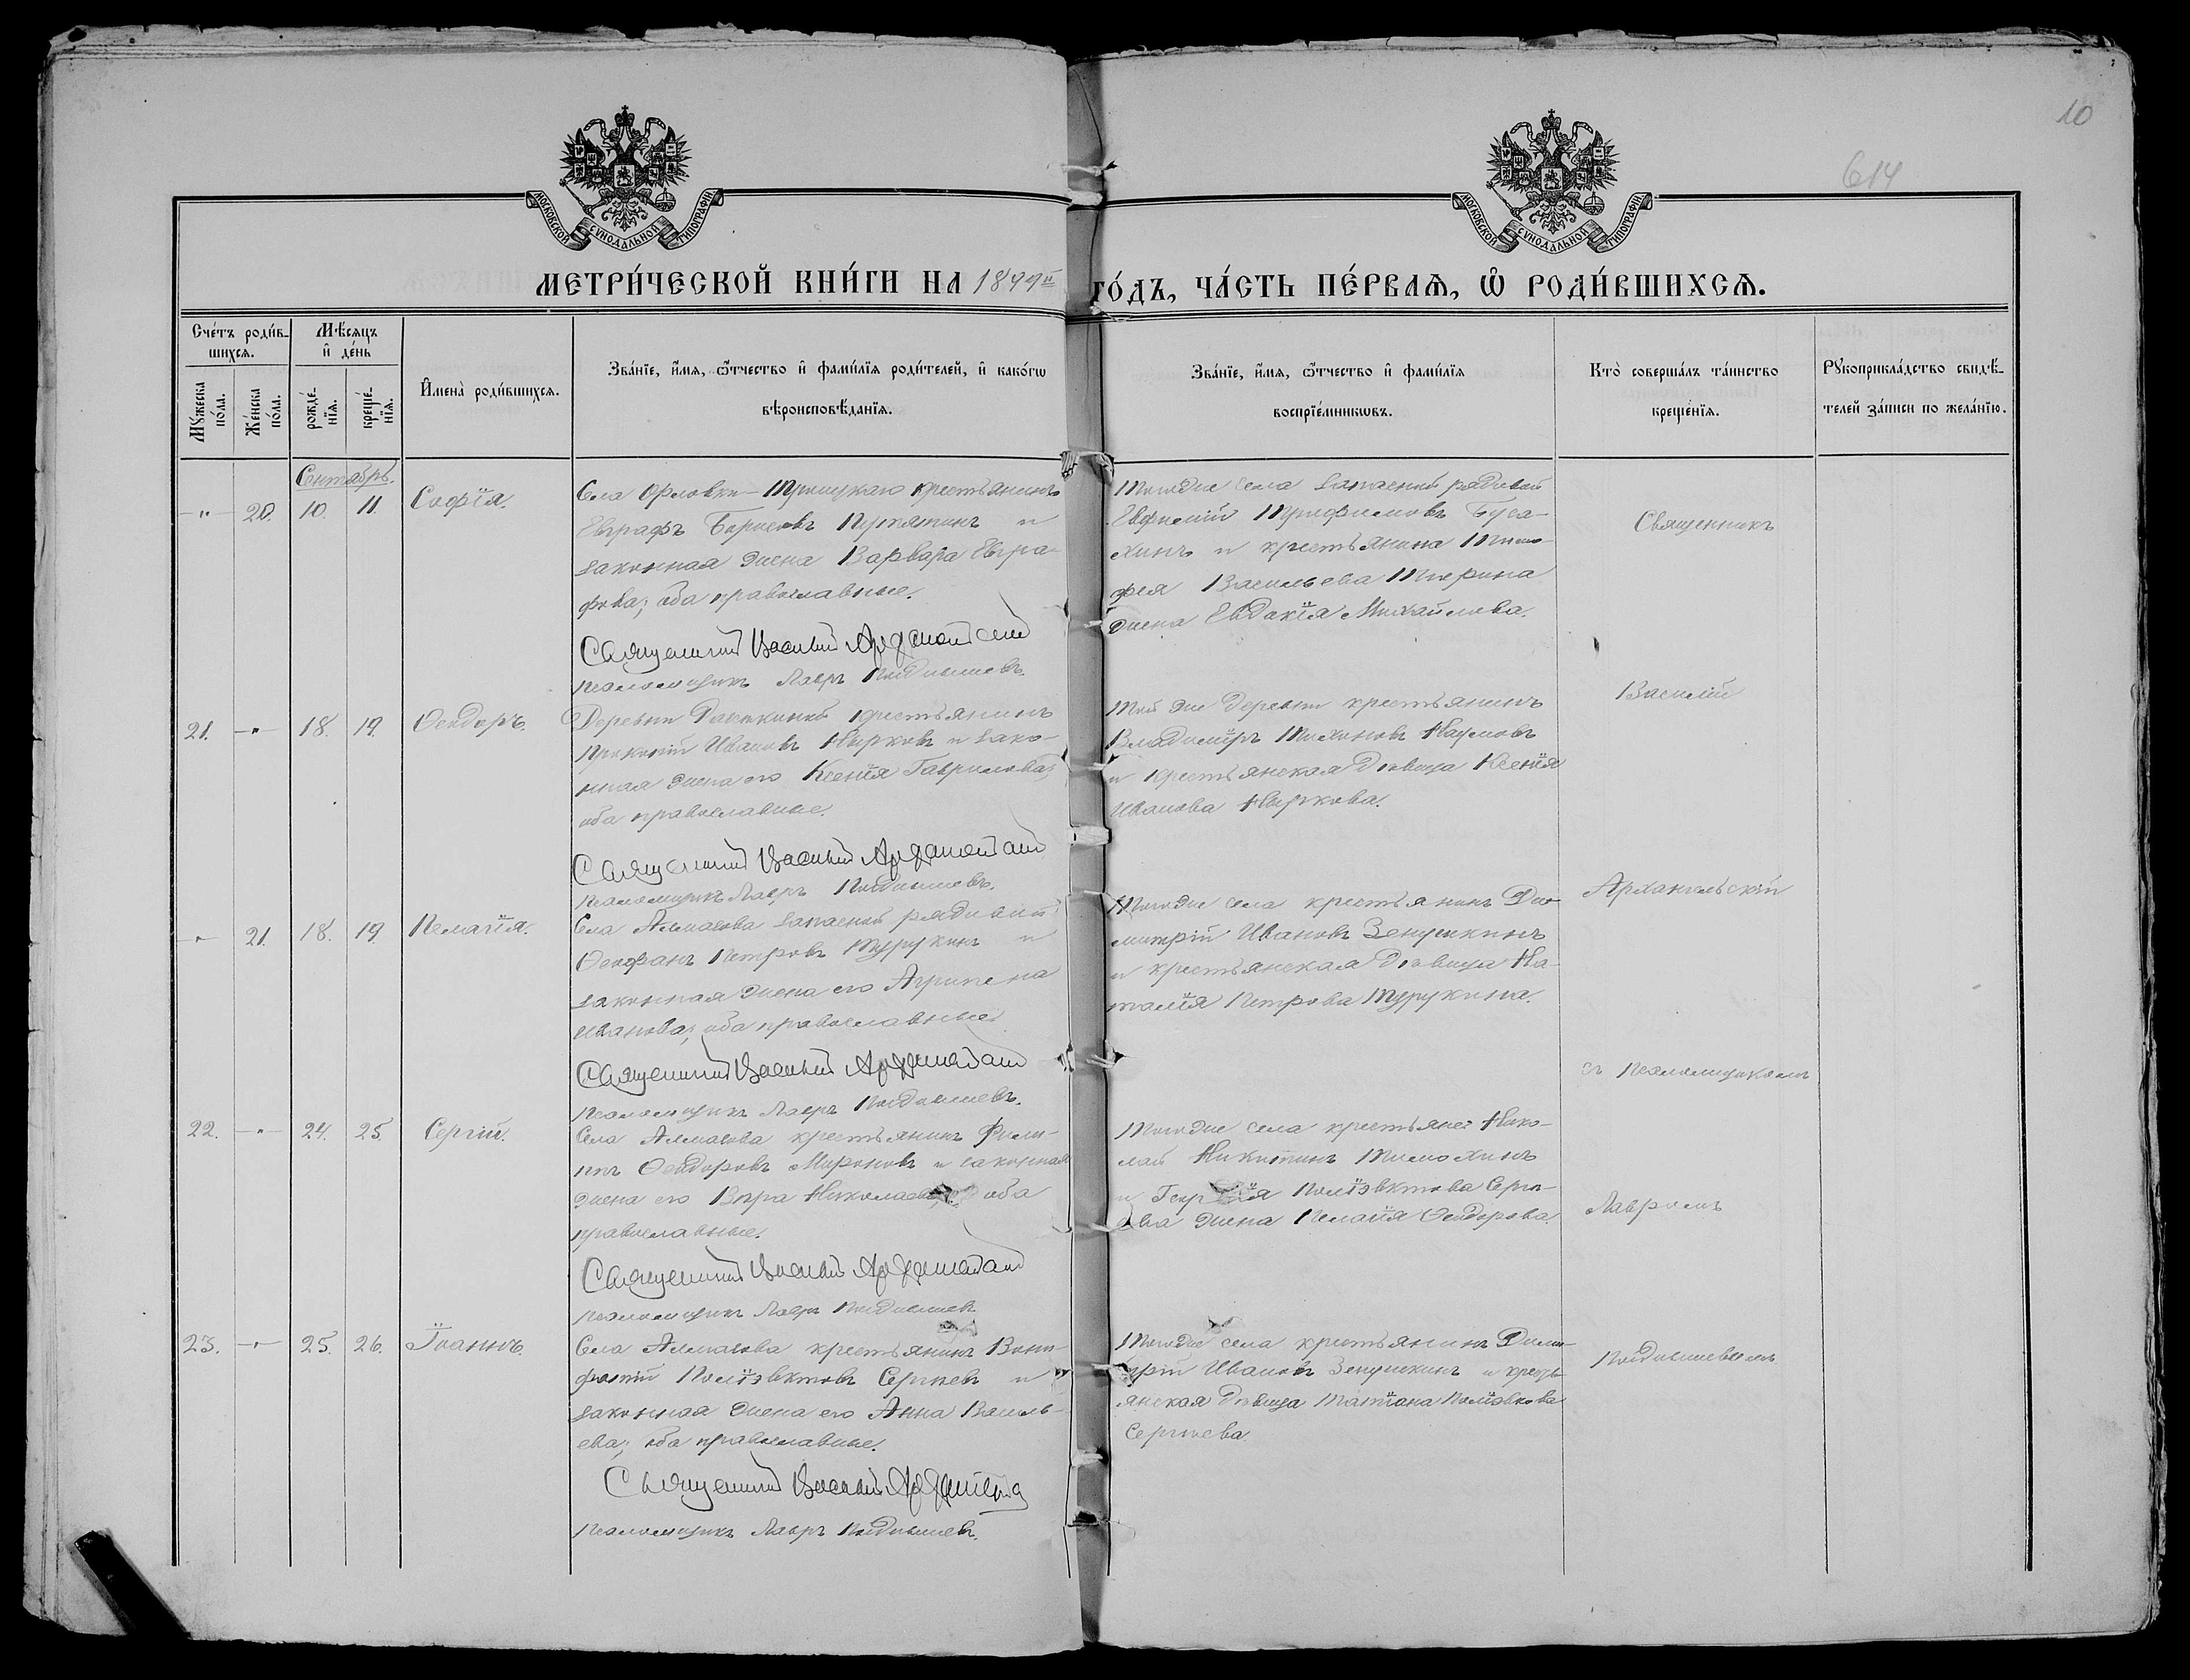 10
614
МОСКОВСКОЙ СѴНОДАЛЬНОЙ ТИПОГРАФІИ
МОСКОВСКОЙ СѴНОДАЛЬНОЙ ТИПОГРАФІИ
МЕТРИ́ЧЕСКОЙ КНИ́ГИ НА 1899й ГО́ДЪ, ЧА́СТЬ ПЕ́РВАѦ, Ѡ҆ РОДИ́ВШИХСѦ.
Сче́тъ роди́в-
шихсѧ.
Мѣ́сѧцъ
и҆ де́нь
Мꙋ́жеска
по́ла.
Же́нска
по́ла.
рожде́-
нїѧ.
креще́-
нїѧ.
И҆мена̀ роди́вшихсѧ.
Зва́нїе, и҆́мѧ, ѻ҆́тчество и҆ фами́лїѧ роди́телей, и҆ како́гѡ
вѣроисповѣ́данїѧ.
Зва́нїе, и҆́мѧ, ѻ҆́тчество и҆ фами́лїѧ
воспрїе́мникѡвъ.
Кто̀ соверша́лъ та́инство
креще́нїѧ.
Рꙋкоприкла́дство свидѣ́-
телей за́писи по жела́нїю.
Сентябрь.
-"- 20. 10. 11. Софія.
Села Орловки-Троицкаго крестьянинъ
Евграфъ Борисовъ и
законная жена Варвара Евгра-
фова; оба православные.
Священникъ Василій Архангельскій
Псаломщикъ Лавръ
Тогоже села запасный рядовой
Евфимій Трифимовъ Буса-
хинъ и крестьянина Тимо-
фея Васильева
жена Евдокія Михайлова.
21. -"- 18. 19. Ѳеодоръ.
Деревни крестьянинъ
Прокопій Ивановъ Нырковъ и зако-
нная жена его Ксенія Гаврилова;
оба православные.
Священникъ Василій Архангельскій
Псаломщикъ Лавръ
Той же деревни крестьянинъ
Владиміръ Тихоновъ Наумовъ
и крестьянская дѣвица Ксенія
Иванова Ныркова.
-"- 21. 18. 19. Пелагія.
Села Алмазова запасной рядовой
Ѳеофанъ Петровъ Турукинъ и
законная жена его Агрипена
Иванова; оба православные.
Священникъ Василій Архангельскій
Псаломщикъ Лавръ
Тогоже села крестьянинъ Ди-
митрій Ивановъ Зенушкинъ
и крестьянская дѣвица На-
талія Петрова Турукина.
22. -"- 24. 25. Сергій.
Села Алмазова крестьянинъ Фили-
ппъ Ѳеодоровъ Мироновъ и законная
жена его Вѣра Николаева, оба
православные.
Священникъ Василій Архангельскій
Псаломщикъ Лавръ
Тогоже села крестьяне: Нико-
лай Никитинъ Тимохинъ
и Поліэвктова Серге-
ева жена Пелагія Ѳеодорова.
23. -"- 25. 26. Іоаннъ.
Села Алмазова крестьянинъ Вони-
фатій Поліэвктовъ Сергѣевъ и
законная жена его Анна Василь-
ева; оба православные.
Священникъ Василій Архангельскій
Псаломщикъ Лавръ
Тогоже села крестьянинъ Дими-
трій Ивановъ Зенушкинъ и кресть-
янская дѣвица Татіана
Сергѣева.
Священникъ
Василій
Архангельскій
съ Псаломщикомъ
Лавромъ